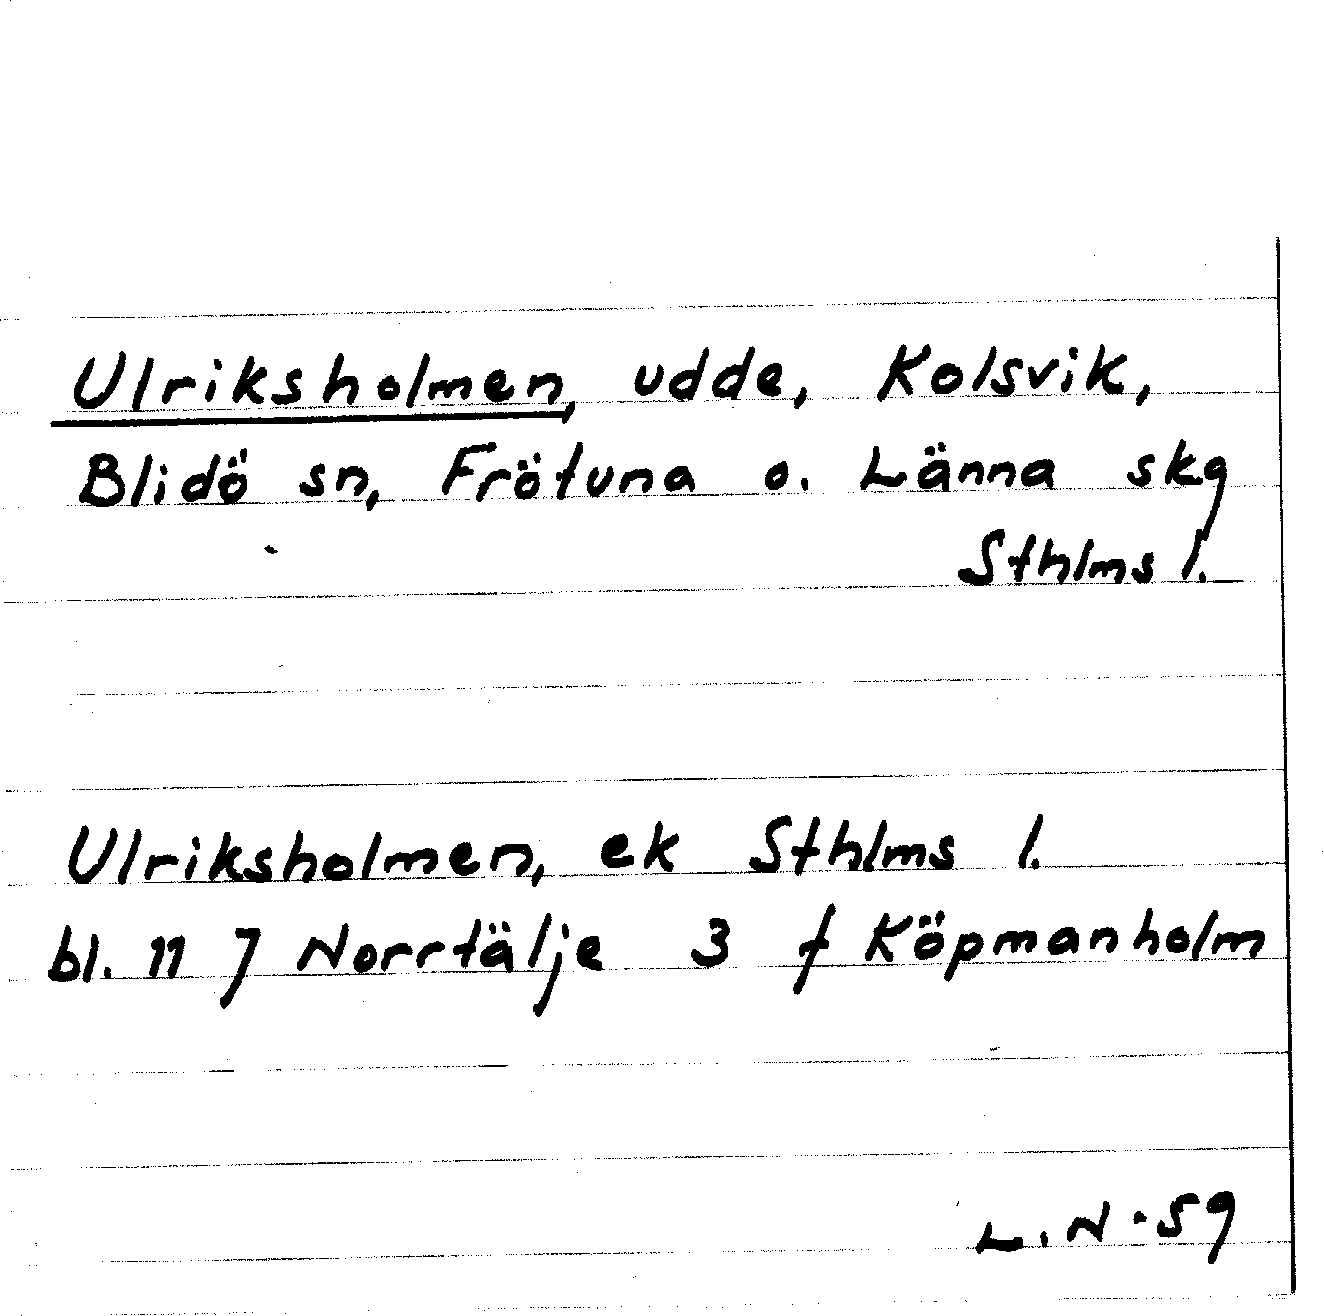 Ulriksholmen, udde, Kolsvik,
Blidö sn, Frötuna o. Länna skg
Sthlms l.
Ulriksholmen, ek Sthlms l.
bl. 11 J Norrtälje 3 f Köpmanholm
L.N. 59